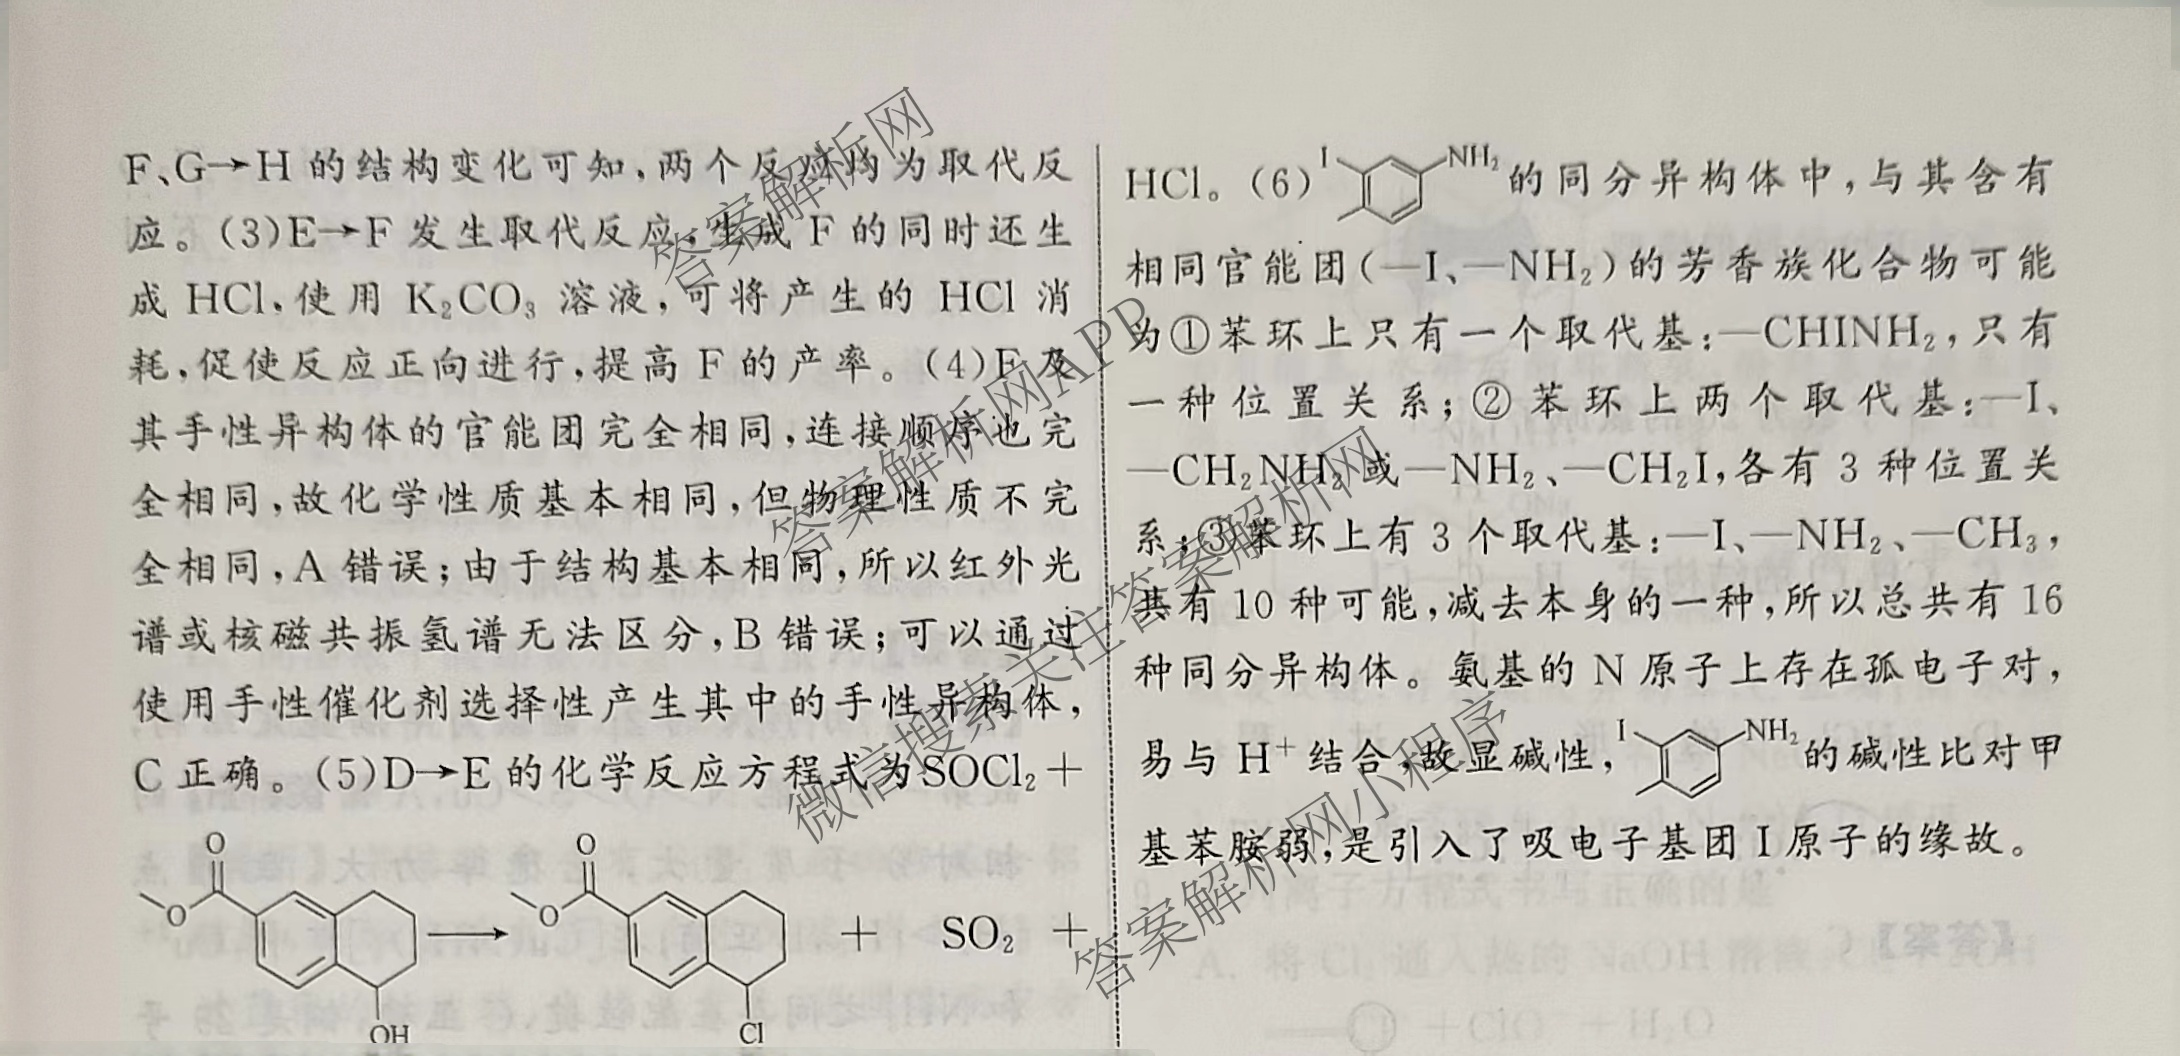 F、G→H 的结构变化可知,两个反应均为取代反
应。(3)E→F 发生取代反应,生成 F 的同时还生
成 HCl,使用 K₂CO₃ 溶液,可将产生的 HCl 消
耗,促使反应正向进行,提高 F 的产率。(4)F 及
其手性异构体的官能团完全相同,连接顺序也完
全相同,故化学性质基本相同,但物理性质不完
全相同,A 错误;由于结构基本相同,所以红外光
谱或核磁共振氢谱无法区分,B 错误;可以通过
使用手性催化剂选择性产生其中的手性异构体,
C 正确。(5)D→E 的化学反应方程式为SOCl₂+
O O OH → O O Cl + SO₂ +
HCl。(6) I NH₂ 的同分异构体中,与其含有
相同官能团(—I、—NH₂)的芳香族化合物可能
为①苯环上只有一个取代基:—CHINH₂,只有
一种位置关系;②苯环上两个取代基:—I、
—CH₂NH₂或—NH₂、—CH₂I,各有 3 种位置关
系;③苯环上有 3 个取代基:—I、—NH₂、—CH₃,
共有 10 种可能,减去本身的一种,所以总共有 16
种同分异构体。氨基的 N 原子上存在孤电子对,
易与 H⁺ 结合,故显碱性, I NH₂ 的碱性比对甲
基苯胺弱,是引入了吸电子基团 I 原子的缘故。
答案解析网
答案解析网APP
微信搜索关注答案解析网
答案解析网小程序